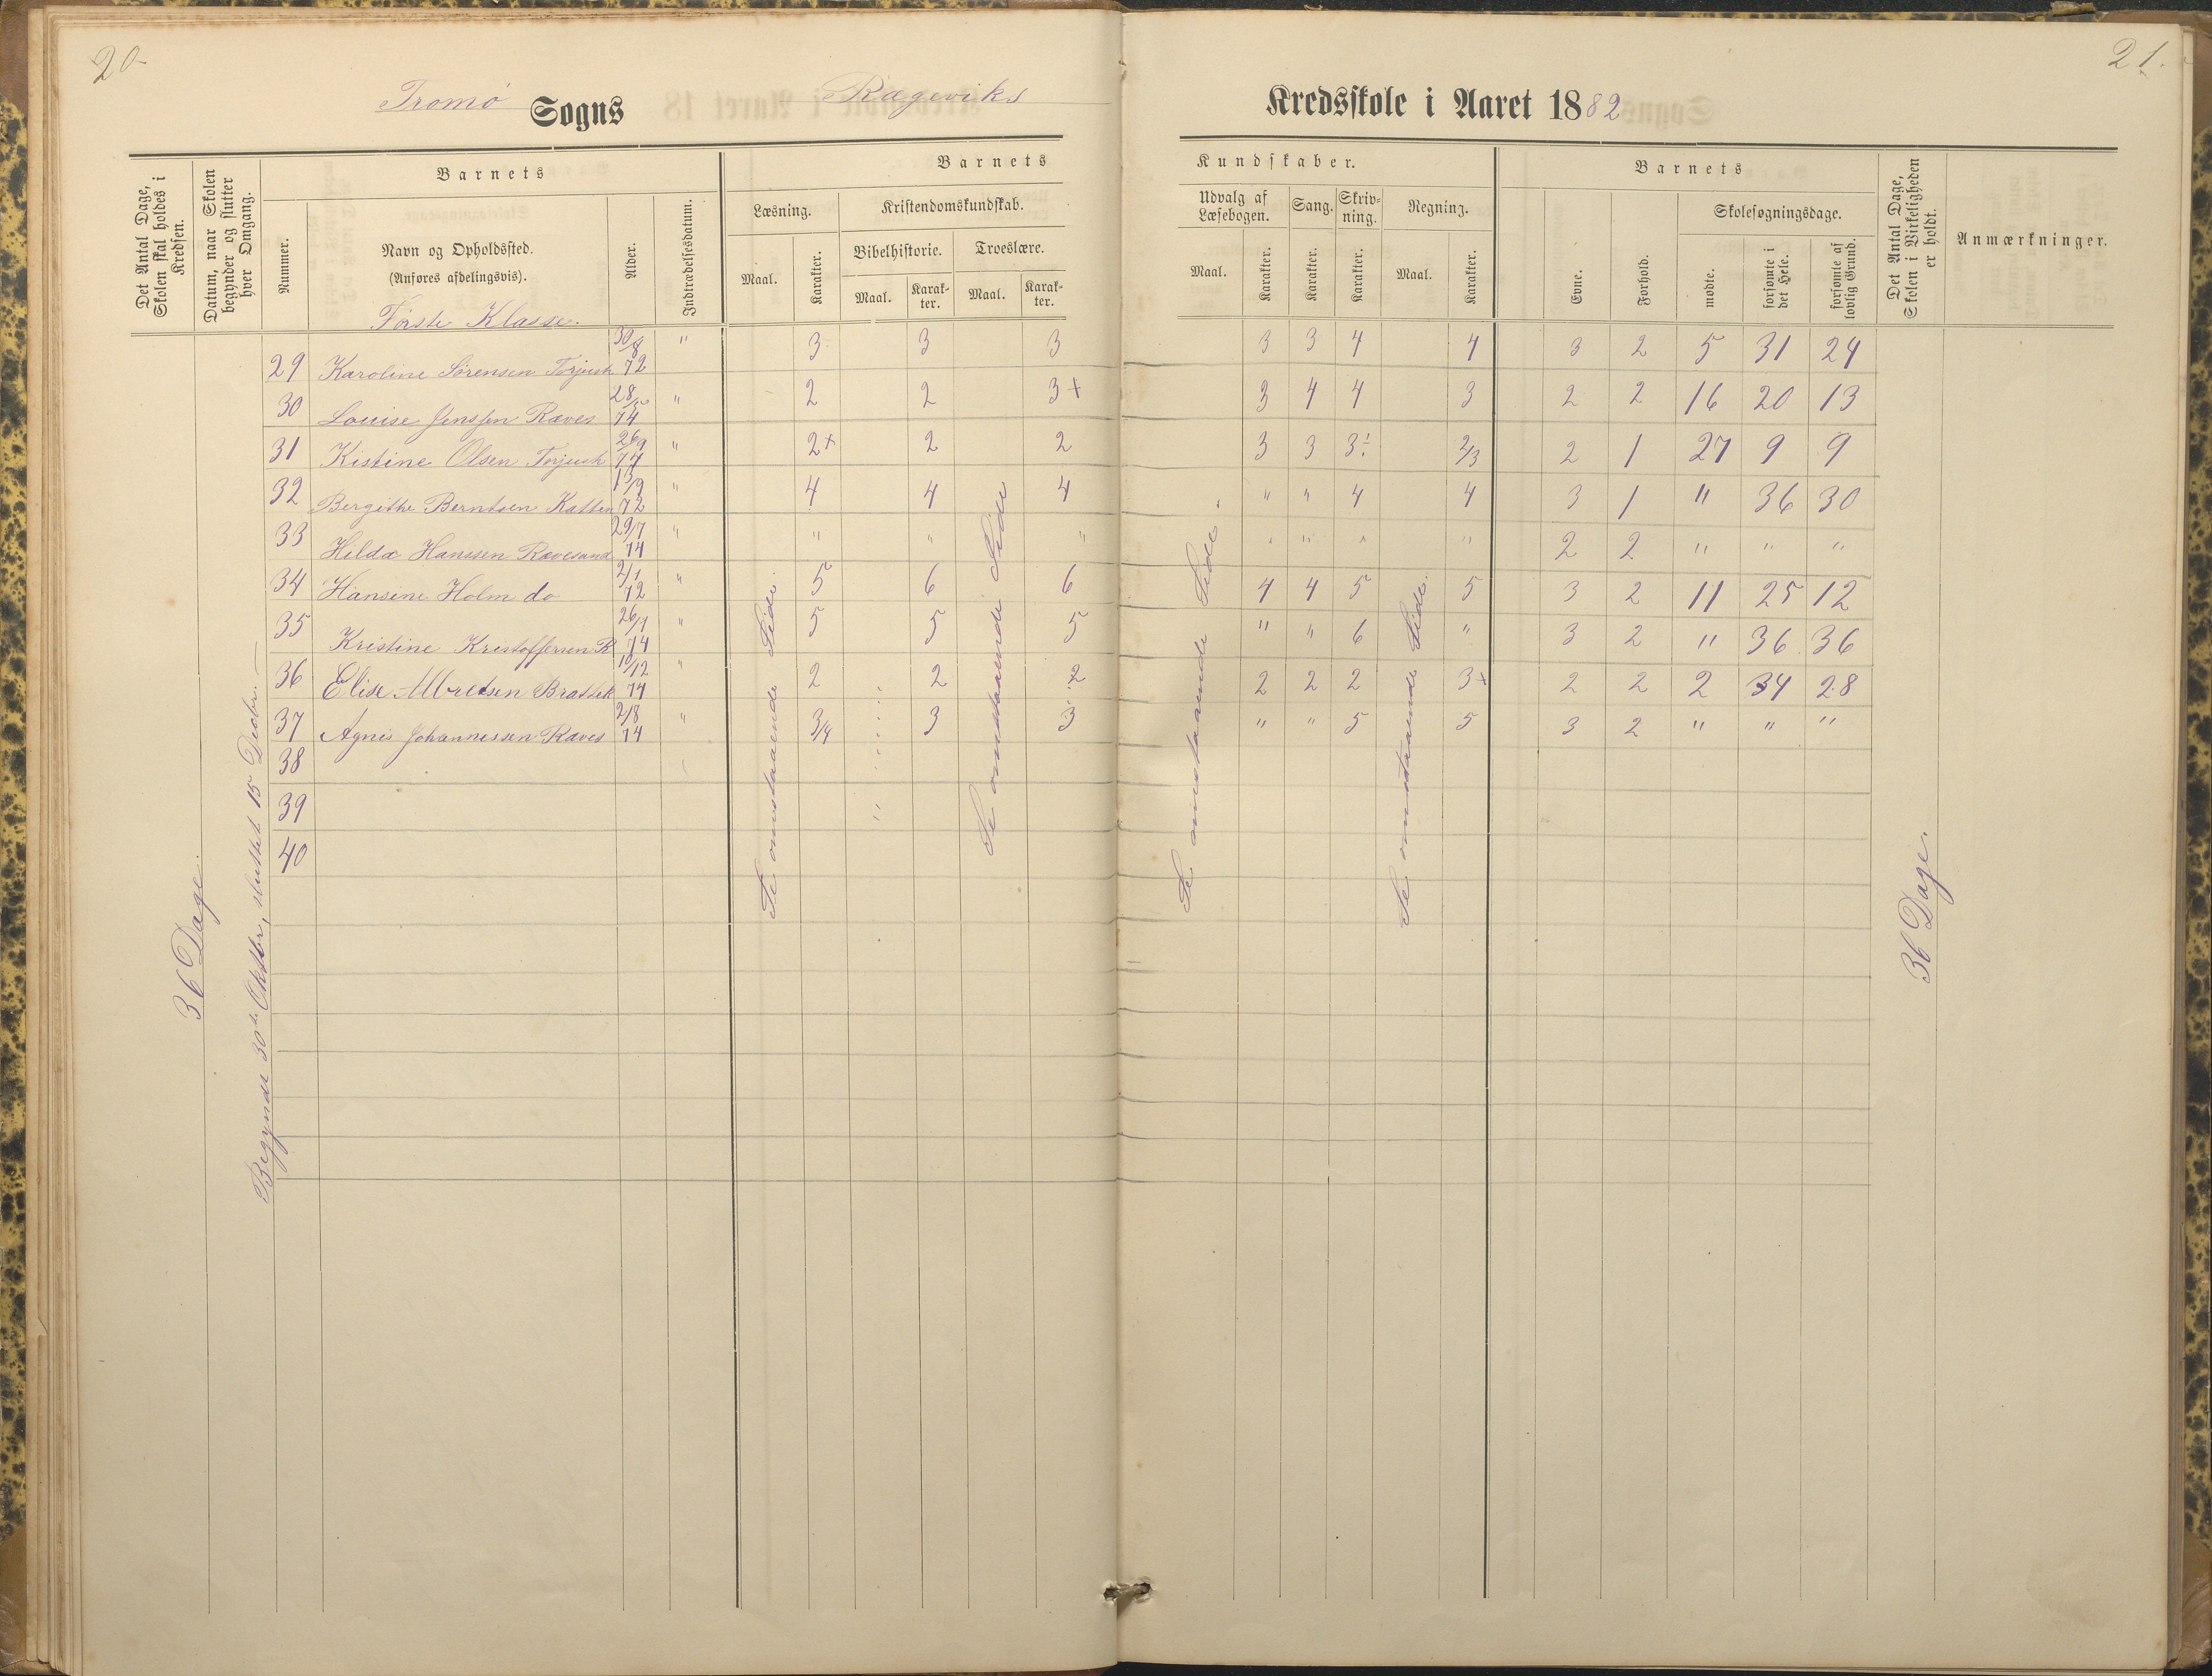 20
Tromø Sogns Rægeviks
Kredsskole i Aaret 1882
21.
Det Antal Dage, Skolen skal holdes i Kredsen.
Datum, naar Skolen begynder og slutter hver Omgang.
Barnets
Nummer.
Navn og Opholdssted.
(Anføres afdelingsvis).
Første Klasse.
Alder.
Indtrædelsesdatum.
Barnets
Læsning.
Maal.
Karakter.
Kristendomskundskab.
Bibelhistorie.
Maal.
Karakter.
Troeslære.
Maal.
Karakter.
Kundskaber.
Udvalg af Læsebogen.
Maal.
Karakter.
Sang.
Karakter.
Skrivning.
Karakter.
Regning.
Maal.
Karakter.
Barnets
Evne.
Forhold.
Skolesøgningsdage.
mødte.
forsømte i det Hele.
forsømte af lovlig Grund.
Det Antal Dage, Skolen i Virkeligheden er holdt.
Anmærkninger.
29 Karoline Sørensen Torjush 30/8 72 " 3 3 3 3 3 4 4 3 2 5 31 24
30 Louise Jenssen Raves 28/5 74 " 2 2 3+ 3 4 4 3 2 2 16 20 13
31 Kistine Olsen Torjush 26/9 74 " 2+ 2 2 3 3 3÷ 2/3 2 1 27 9 9
32 Bergithe Berntsen Katten 13/9 72 " 4 4 4 " " 4 4 3 1 " 36 30
33 Hilda Hanssen Ravesand 29/7 74 " " " " " " " " 2 2 " " "
34 Hansine Holm do 2/1 72 " 5 6 6 4 4 5 5 3 2 11 25 12
35 Kristine Kristoffersen R 26/1 74 " 5 5 5 " " 6 " 3 2 " 36 36
36 Elise Albretsen Brattek 10/12 74 " 2 2 2 2 2 2 3+ 2 2 2 34 28
37 Agnes Johannessen Raves 2/8 74 " 3/4 3 3 " " 5 5 3 2 " " "
38
39
40
36 Dage.
Begyndt 30te Oktbr, sluttet 15 Decbr. —
Se omstaaende Side.
Se omstaaende Side
Se omstaaende Side.
Se omstaaende Side.
36 Dage.